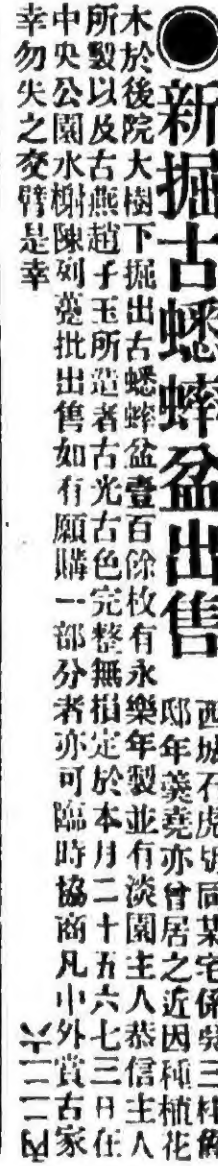 ●新掘古蟋蟀盆出售
西城石虎胡同某宅係吳三桂舊
邸年羹堯亦曾居之近因種植花
木於後院大樹下掘出古蟋蟀盆壹百餘枚有永樂年製並有淡園主人恭信主人
所製以及古燕趙子玉所造者古光古色完整無損定於本月二十五六七三日在
中央公園水榭陳列躉批出售如有願購一部分者亦可臨時協商凡中外賞古家
幸勿失之交臂是幸
六二二內